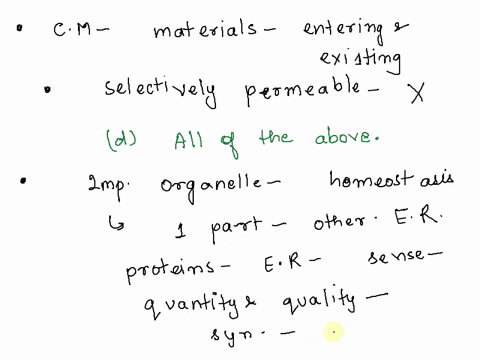 • C.M - materials - entering &
existing
• selectively permeable - X
(d) All of the above.
• Imp. organelle - homeostasis
↳ 1 part - other. E.R.
proteins - E.R - sense -
quantity & quality -
syn. -